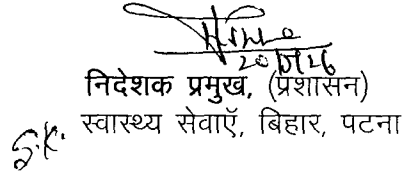 निदेशक प्रमुख, (प्रशासन)
स्वास्थ्य सेवाऍ, बिहार, पटना
S.K.